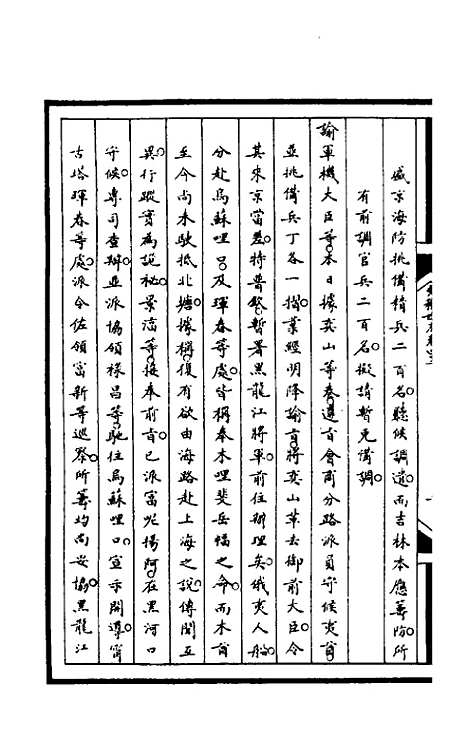 盛京海防挑備精兵二百名聽候調遣而吉林本應籌防所
有前調官兵二百名擬請暫免備調
諭軍機大臣等本日據奕山等奏遵旨會商分路派員守候夷酋
並挑備兵丁各一摺業經明降諭旨將奕山革去御前大臣令
其來京當差特普欽暫署黑龍江將軍前往辦理矣俄夷人船
分赴烏蘇哩口及琿春等處皆稱奉木哩斐岳幅之命而木酋
至今尚未駛抵北塘據稱復有欲由海路赴上海之說傳聞互
異行蹤實為詭秘景淳等接奉前旨已派富呢揚阿在黑河口
守候專司查辦並派協領祿昌等馳往烏蘇哩口宣示開導甯
古塔琿春等處派令佐領富新等巡察所籌均尚妥協黑龍江